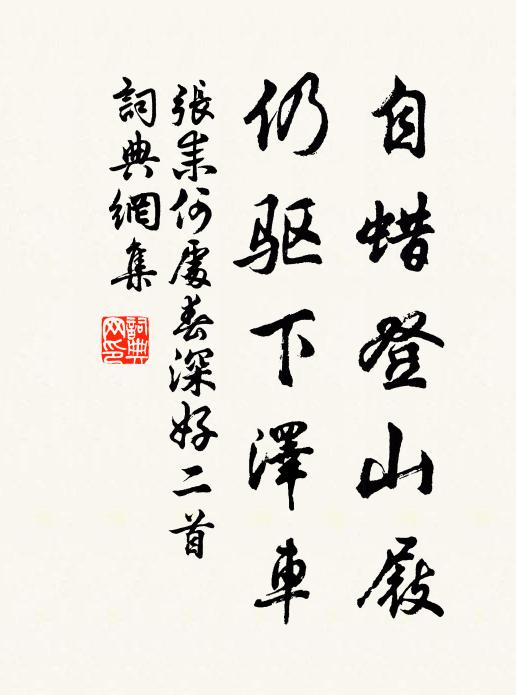 自蜡登山屐
仍驱下澤車
張耒何處春深好二首
詞典網集
詞典网印